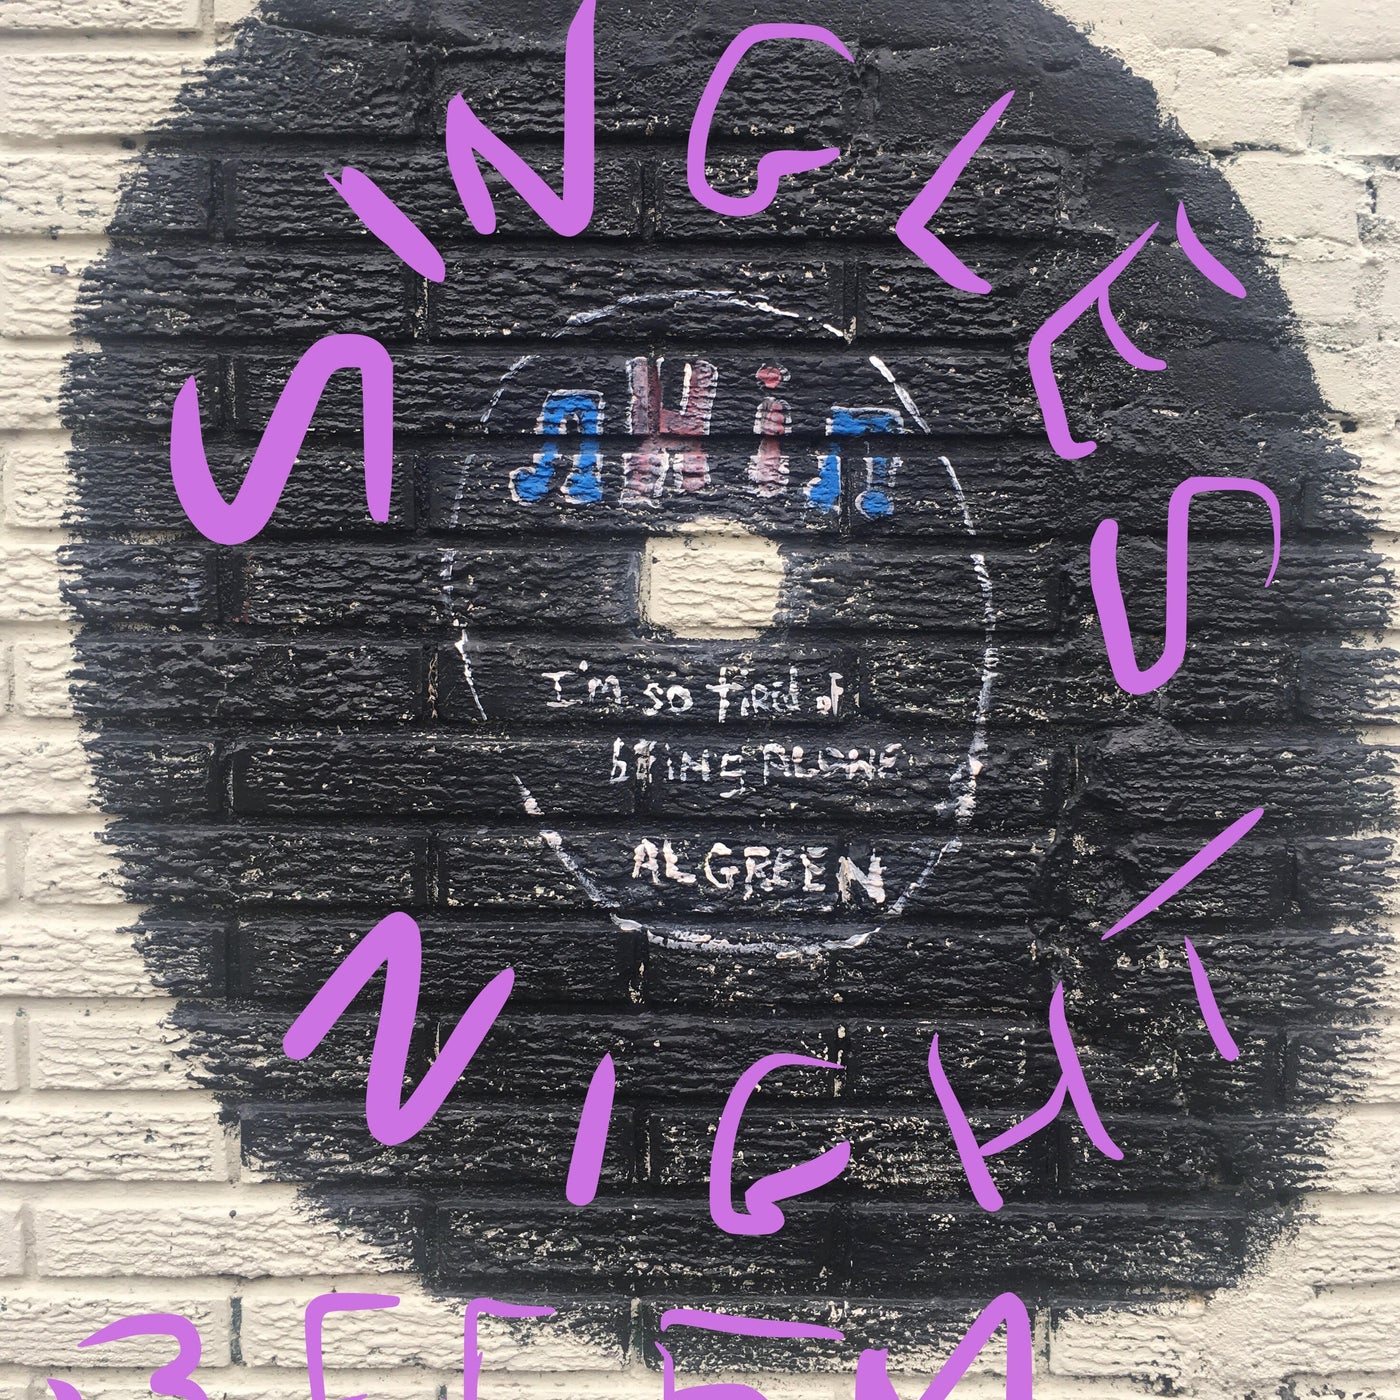 SINGLES
Hi
I'm so tired of
being ALONE
AL GREEN
NIGHT